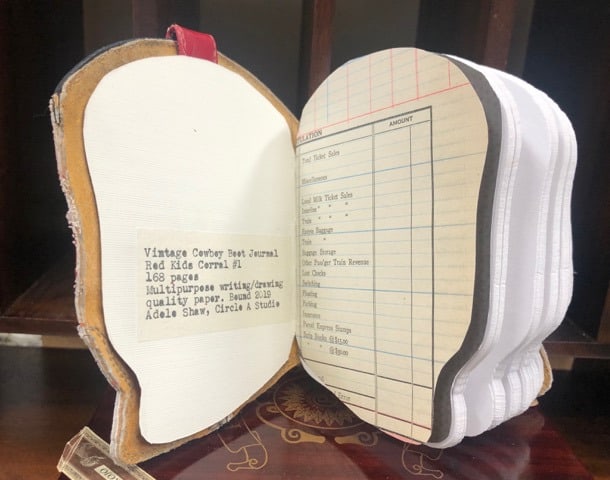 Vintage Cowboy Boot Journal
Red Kids Corral #1
168 pages
Multipurpose writing/drawing
quality paper. Bound 2019
Adele Shaw, Circle A Studio
AMOUNT
Total Ticket Sales
Miscellaneous
Local Milk Ticket Sales
Interline " " "
Train " " "
Excess Baggage
Train "
Baggage Storage
Other Pass'ger Train Revenue
Lost Checks
Switching
Phoning
Parking
Insurance
Parcel Express Storage
Scrip Books @
" " @
Error